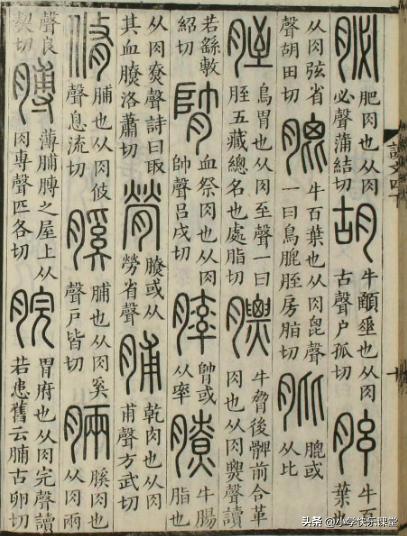 䏟肥肉也从肉必聲蒲結切胡牛顄垂也从肉古聲戶孤切胘牛百葉也
从肉弦省聲胡田切膍牛百葉也从肉𣬉聲一曰鳥膍胵房脂切肶膍或从比
胵鳥胃也从肉至聲一曰胵五藏總名也處脂切膘牛脅後髀前合革肉也从肉𤐫聲讀
若繇敷紹切𦡩血祭肉也从肉帥聲呂戌切膟𦡩或从率膫牛腸脂也
从肉尞聲詩曰取其血膫洛蕭切膋膫或从勞省聲脯乾肉也从肉甫聲方武切
脩脯也从肉攸聲息流切膎脯也从肉奚聲戶皆切脼膎肉也从肉㒳
聲良奬切膊薄脯膊之屋上从肉尃聲匹各切脘胃府也从肉完聲讀若患舊云脯古卵切
头条 @小学快乐课堂